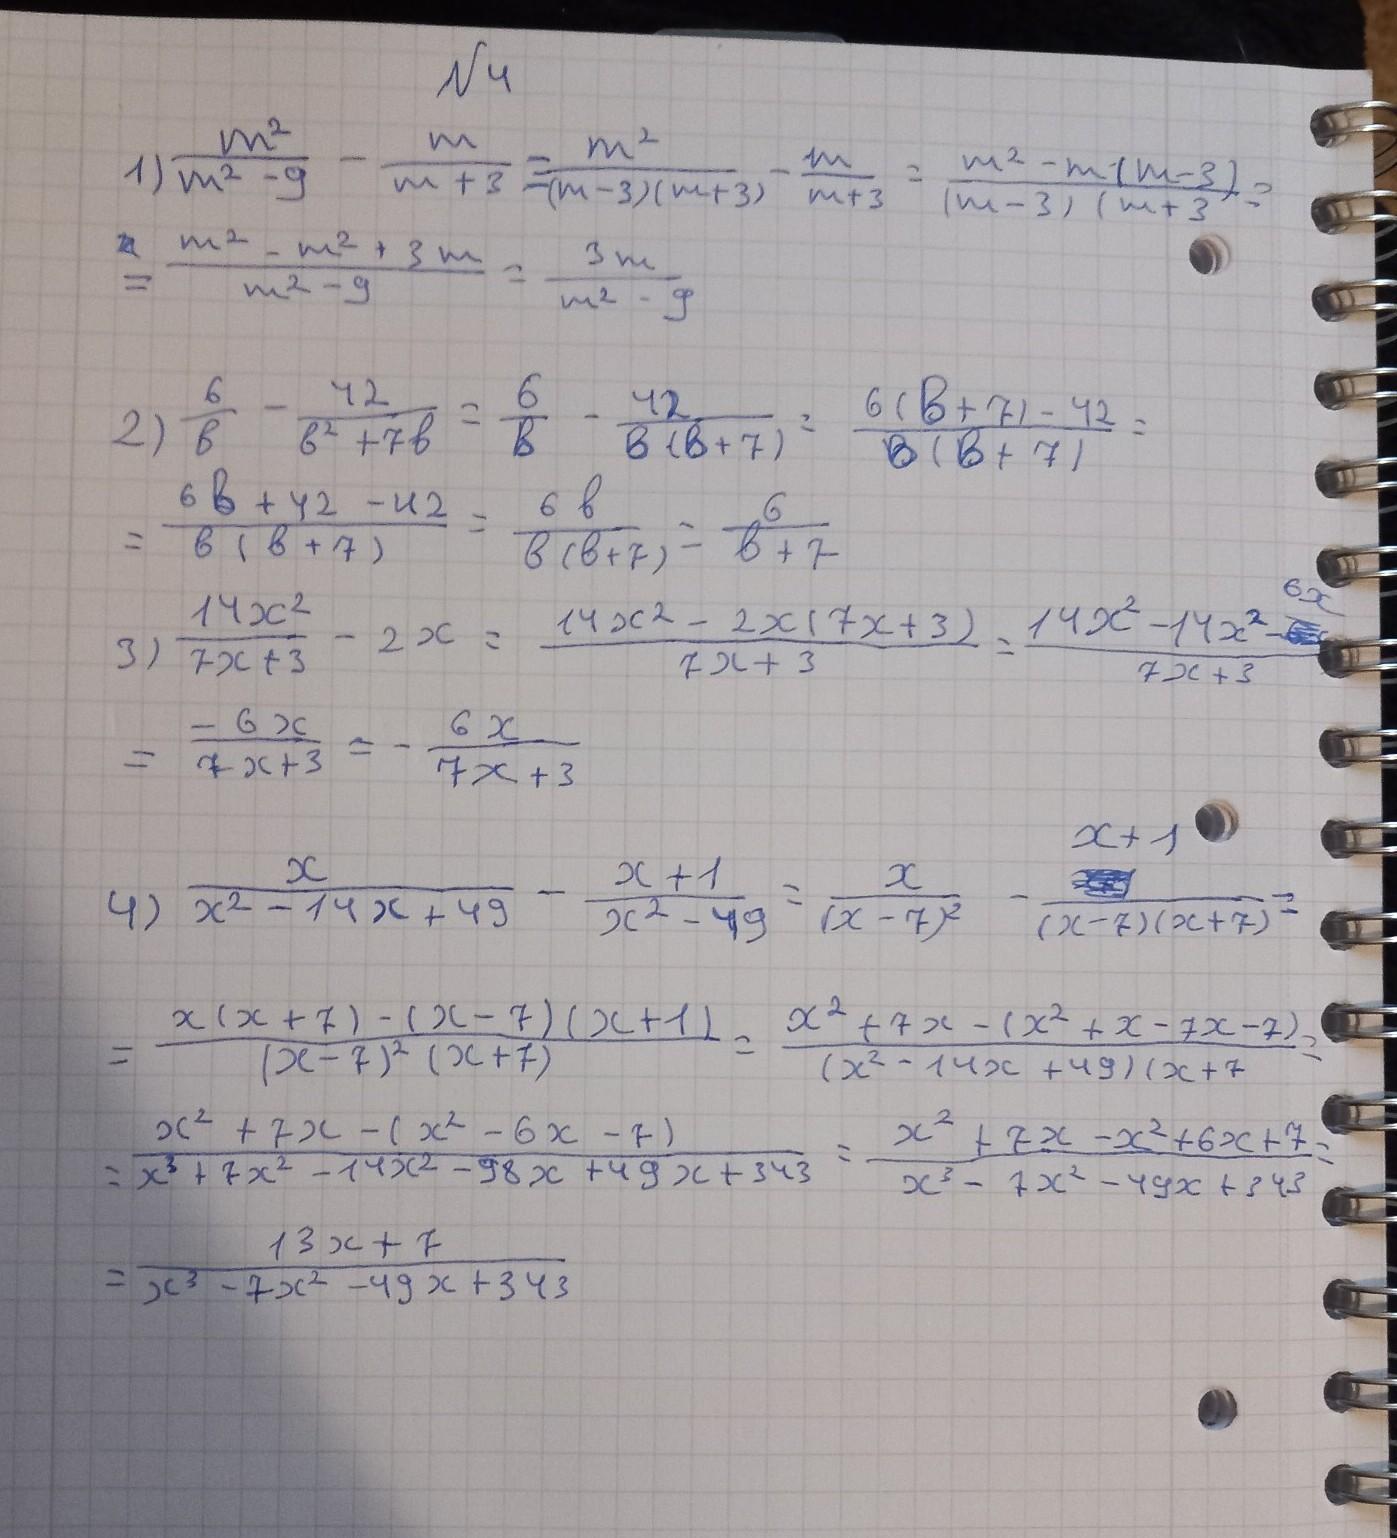 №4
1) m²/(m² - 9) - m/(m + 3) = m²/((m - 3)(m + 3)) - m/(m + 3) = (m² - m(m - 3))/((m - 3)(m + 3) =
= (m² - m² + 3m)/(m² - 9) = 3m/(m² - 9)
2) 6/в - 42/(в² + 7в) = 6/в - 42/(в(в + 7)) = (6(в + 7) - 42)/(в(в + 7)) =
= (6в + 42 - 42)/(в(в + 7)) = 6в/(в(в + 7)) = 6/(в + 7)
3) 14x²/(7x + 3) - 2x = (14x² - 2x(7x + 3))/(7x + 3) = (14x² - 14x² - 6x)/(7x + 3)
= (-6x)/(7x + 3) = - 6x/(7x + 3)
4) x/(x² - 14x + 49) - (x + 1)/(x² - 49) = x/(x - 7)² - (x + 1)/((x - 7)(x + 7)) =
= (x(x + 7) - (x - 7)(x + 1))/((x - 7)²(x + 7)) = (x² + 7x - (x² + x - 7x - 7))/((x² - 14x + 49)(x + 7 =
= (x² + 7x - (x² - 6x - 7))/(x³ + 7x² - 14x² - 98x + 49x + 343) = (x² + 7x - x² + 6x + 7)/(x³ - 7x² - 49x + 343) =
= (13x + 7)/(x³ - 7x² - 49x + 343)